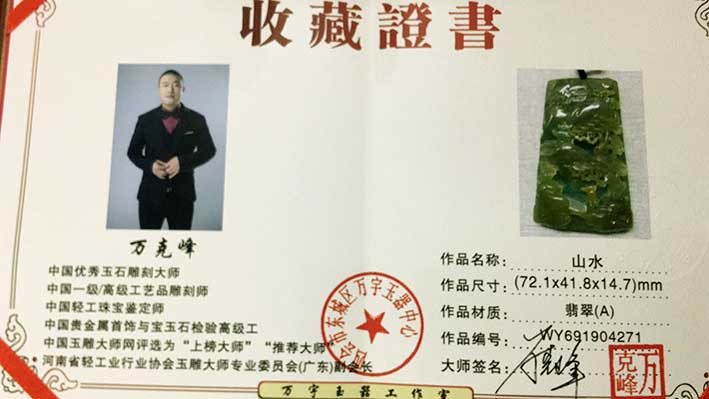 收藏證書
万克峰
中国优秀玉石雕刻大师
中国一级/高级工艺品雕刻师
中国轻工珠宝鉴定师
中国贵金属首饰与宝玉石检验高级工
中国玉雕大师网评选为“上榜大师”“推荐大师”
河南省轻工业行业协会玉雕大师专业委员会(广东)副会长
四会市东城区万宇玉器中心
作品名称: 山水
作品尺寸: (72.1x41.8x14.7)mm
作品材质: 翡翠(A)
作品编号: WY691904271
大师签名:
万克峰
万宇玉器工作室